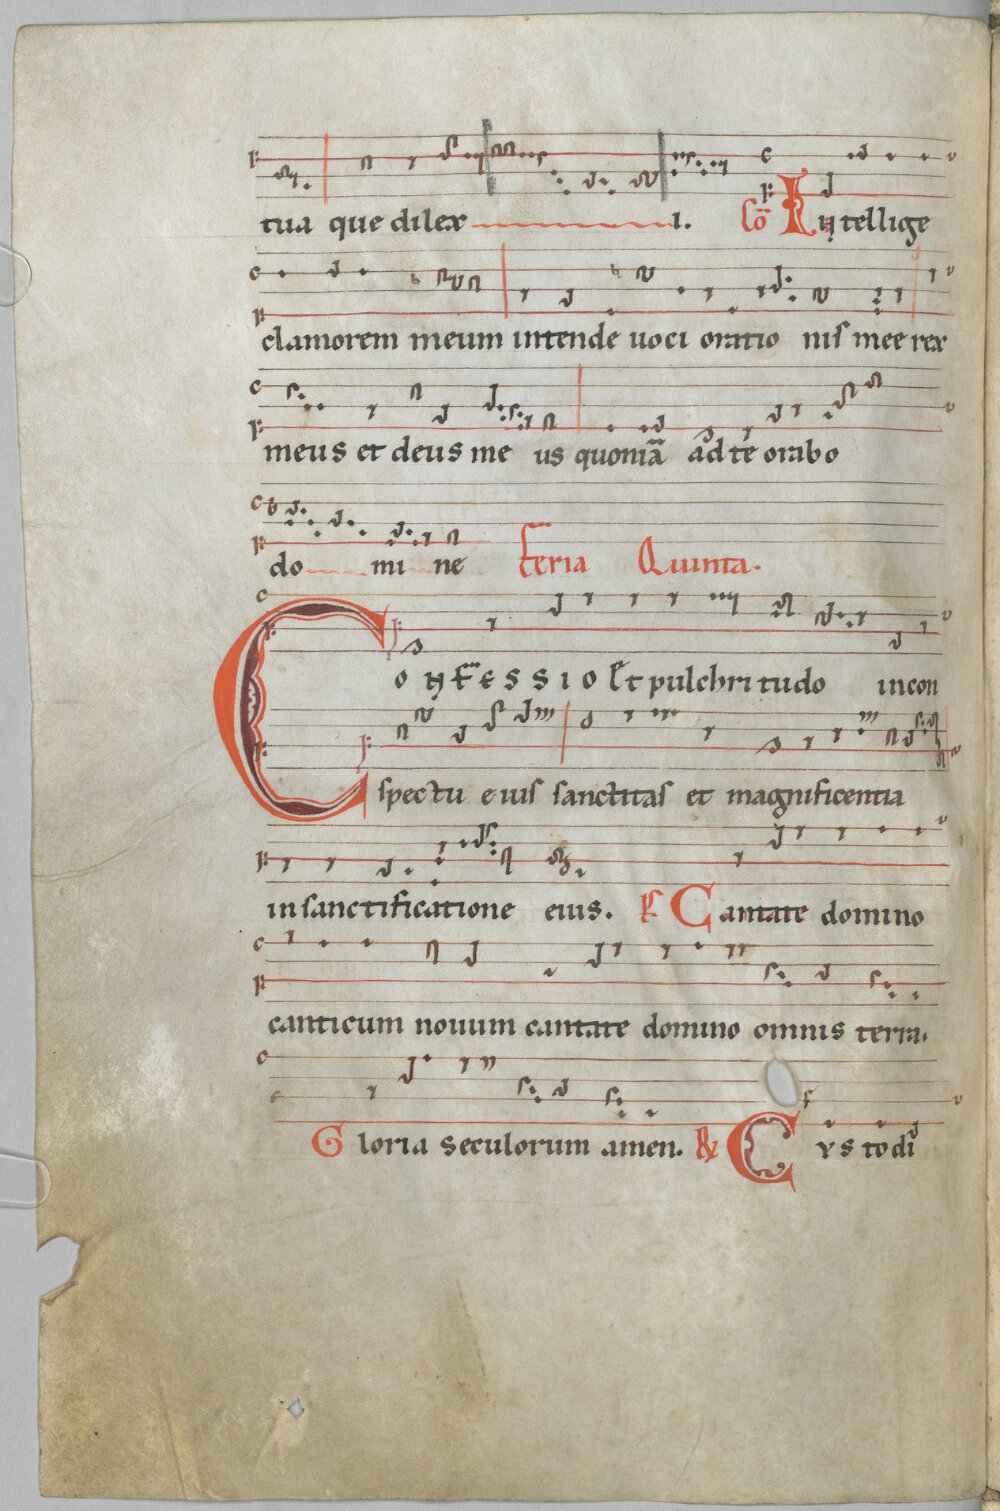 tua que dilexi. Cō Intellige
clamorem meum intende uoci oratio nis mee rex
meus et deus me us quoniā ad te orabo
do mi ne feria Quinta.
Confessio Et pulchritudo in con
spectu eius sanctitas et magnificentia
in sanctificatione eius. Ps Cantate domino
canticum nouum cantate domino omnis terra.
Gloria seculorum amen. R Custodi